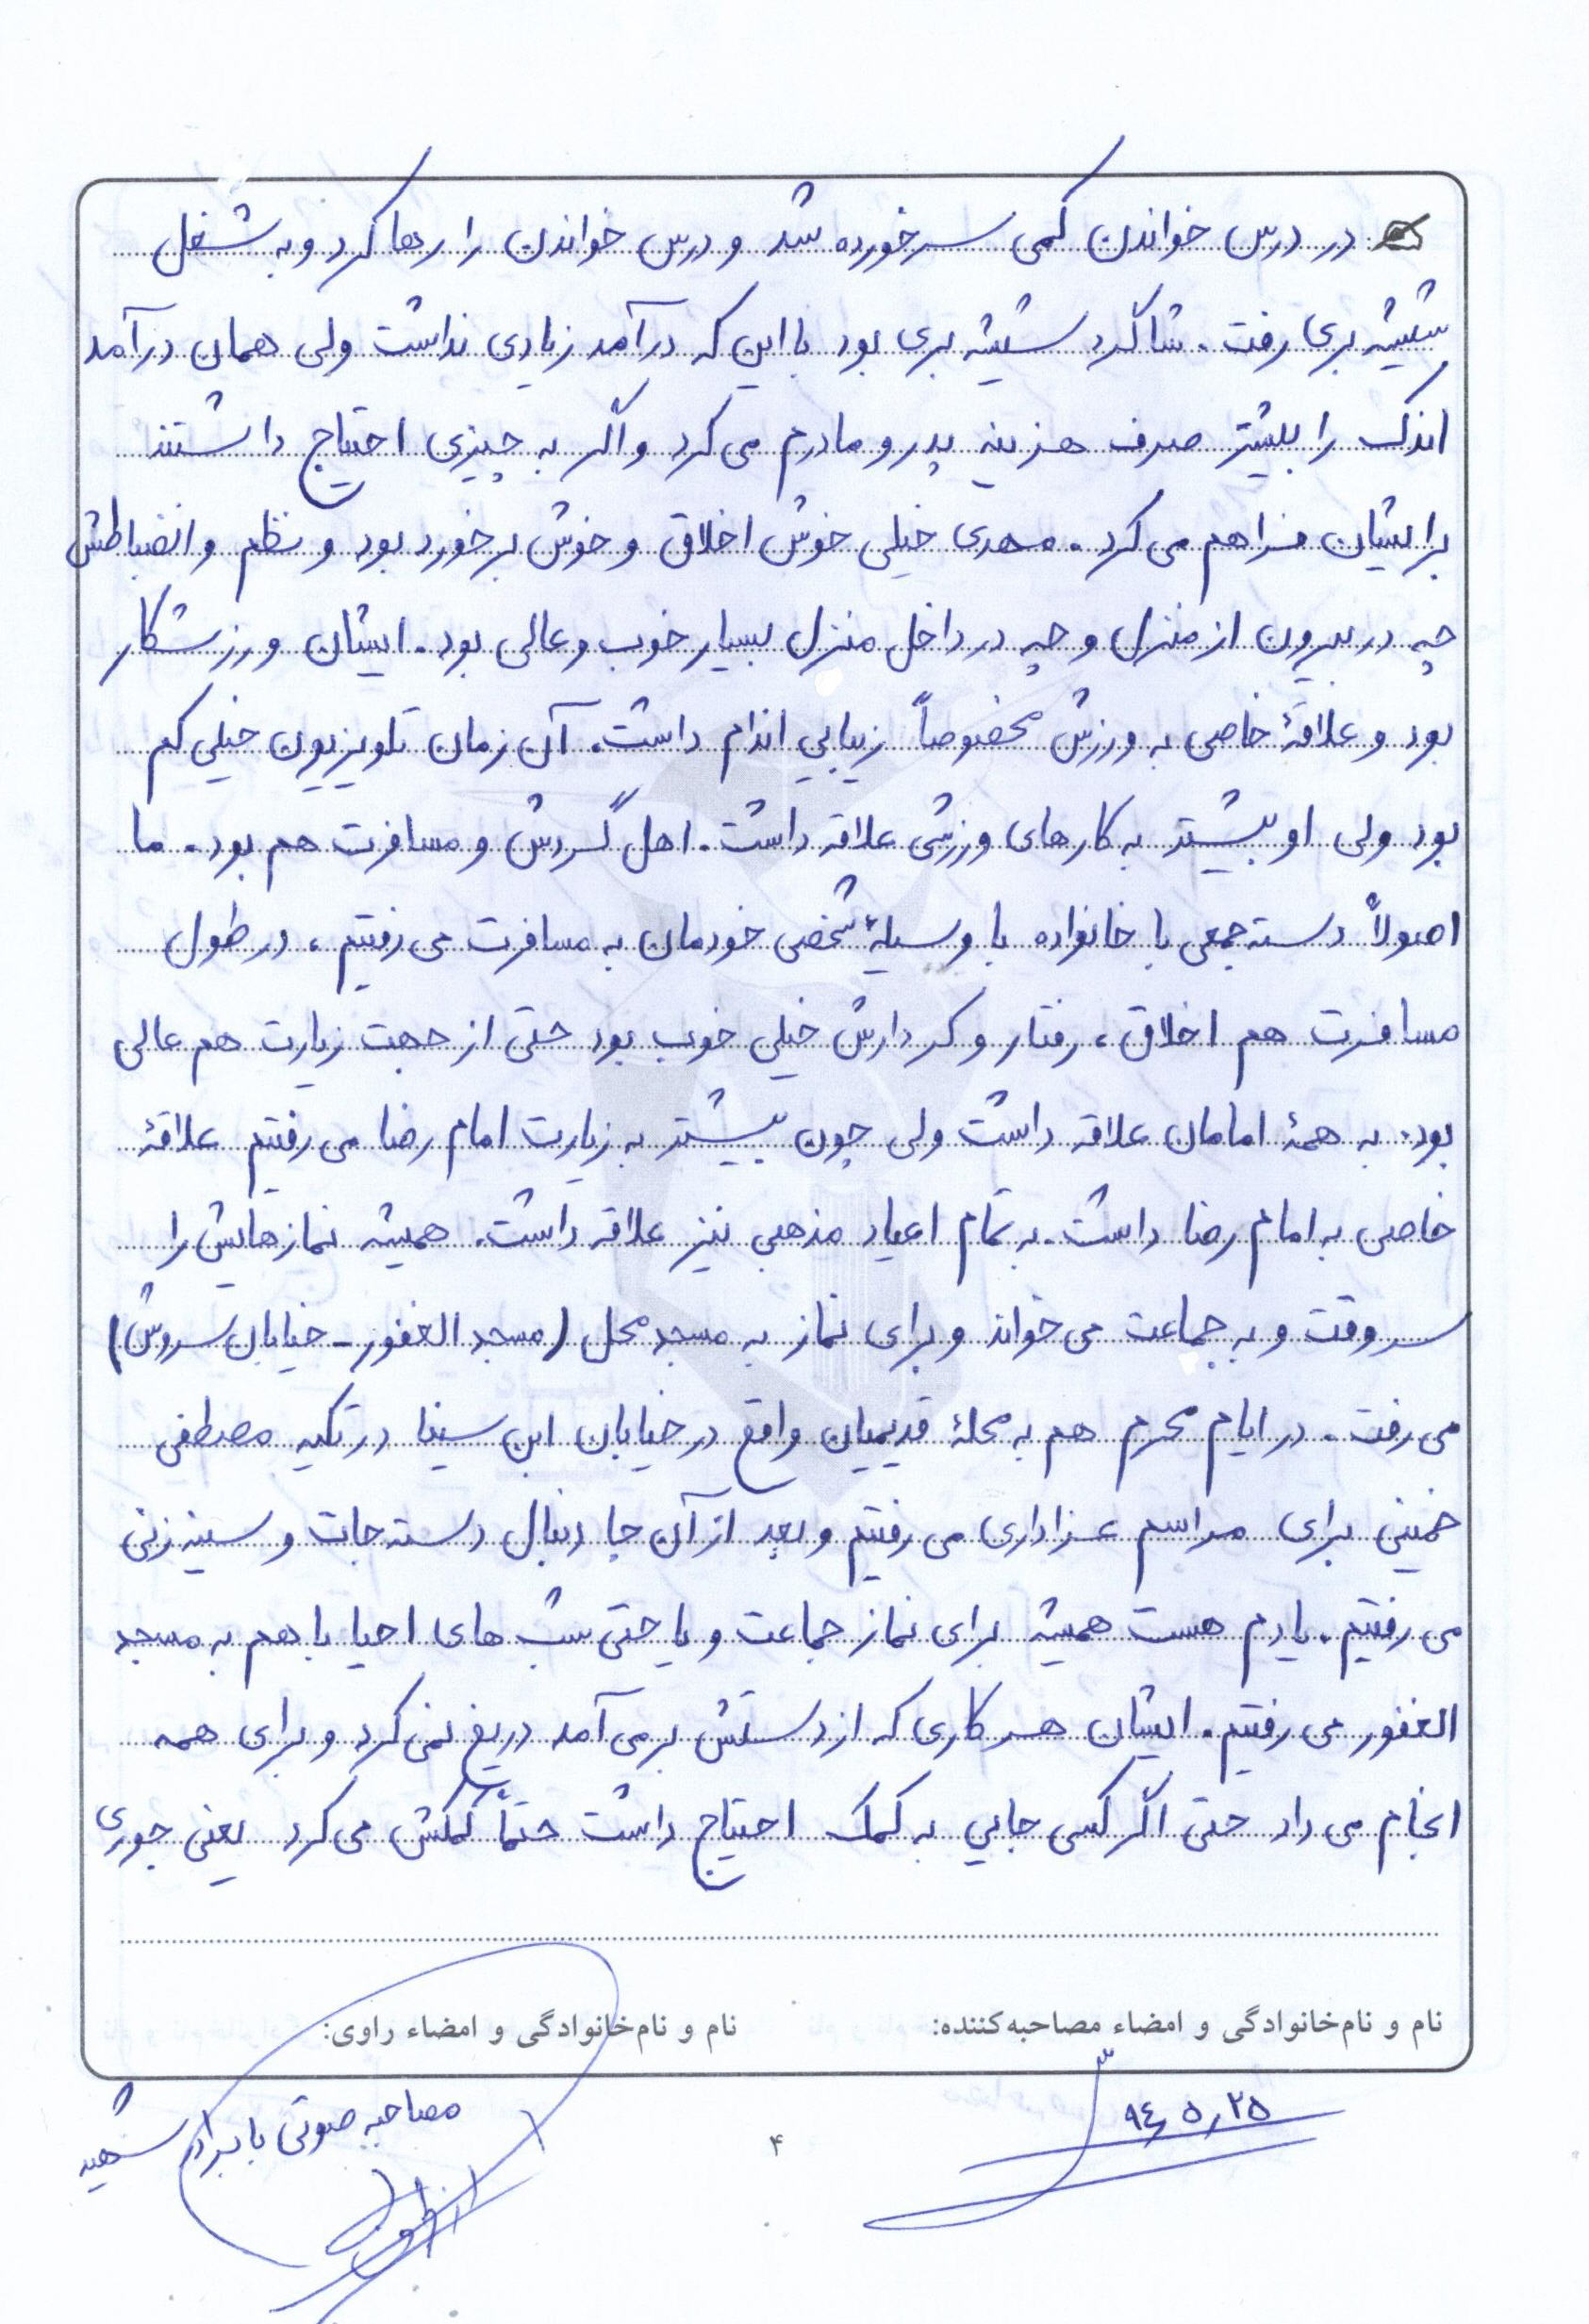 در درس خواندن کمی سرخورده شد و درس خواندن را رها کرد و به شغل
شیشه بری رفت. شاگرد شیشه بری بود با این که درآمد زیادی نداشت ولی همان درآمد
اندک را بیشتر صرف هزینه پدر و مادرم می کرد و اگر به چیزی احتیاج داشتند
برایشان فراهم می کرد. مهدی خیلی خوش اخلاق و خوش برخورد بود و نظم و انضباطش
چه در بیرون از منزل و چه در داخل منزل بسیار خوب و عالی بود. ایشان ورزشکار
بود و علاقهٔ خاصی به ورزش مخصوصاً زیبایی اندام داشت. آن زمان تلویزیون خیلی کم
بود ولی او بیشتر به کارهای ورزشی علاقه داشت. اهل گردش و مسافرت هم بود. ما
اصولاً دسته جمعی با خانواده با وسیلهٔ شخصی خودمان به مسافرت می رفتیم، در طول
مسافرت هم اخلاق، رفتار و کردارش خیلی خوب بود حتی از جهت زیارت هم عالی
بود. به همهٔ امامان علاقه داشت ولی چون بیشتر به زیارت امام رضا می رفتیم علاقهٔ
خاصی به امام رضا داشت. به تمام اعیاد مذهبی نیز علاقه داشت. همیشه نمازهایش را
سر وقت و به جماعت می خواند و برای نماز به مسجد محل (مسجد الغفور - خیابان سروش)
می رفت. در ایام محرم هم به محلهٔ قدیمیان واقع در خیابان ابن سینا در تکیه مصطفی
خمینی برای مراسم عزاداری می رفتیم و بعد از آن جا دنبال دسته جات و سینه زنی
می رفتیم. یادم هست همیشه برای نماز جماعت و یا حتی شب های احیا با هم به مسجد
الغفور می رفتیم. ایشان هر کاری که از دستش برمی آمد دریغ نمی کرد و برای همه
انجام می داد حتی اگر کسی جایی به کمک احتیاج داشت حتماً کمکش می کرد یعنی جوری
نام و نام‌خانوادگی و امضاء مصاحبه‌کننده: نام و نام‌خانوادگی و امضاء راوی:
۹۴٫۵٫۲۵
مصاحبه صوتی با برادر شهید
۴